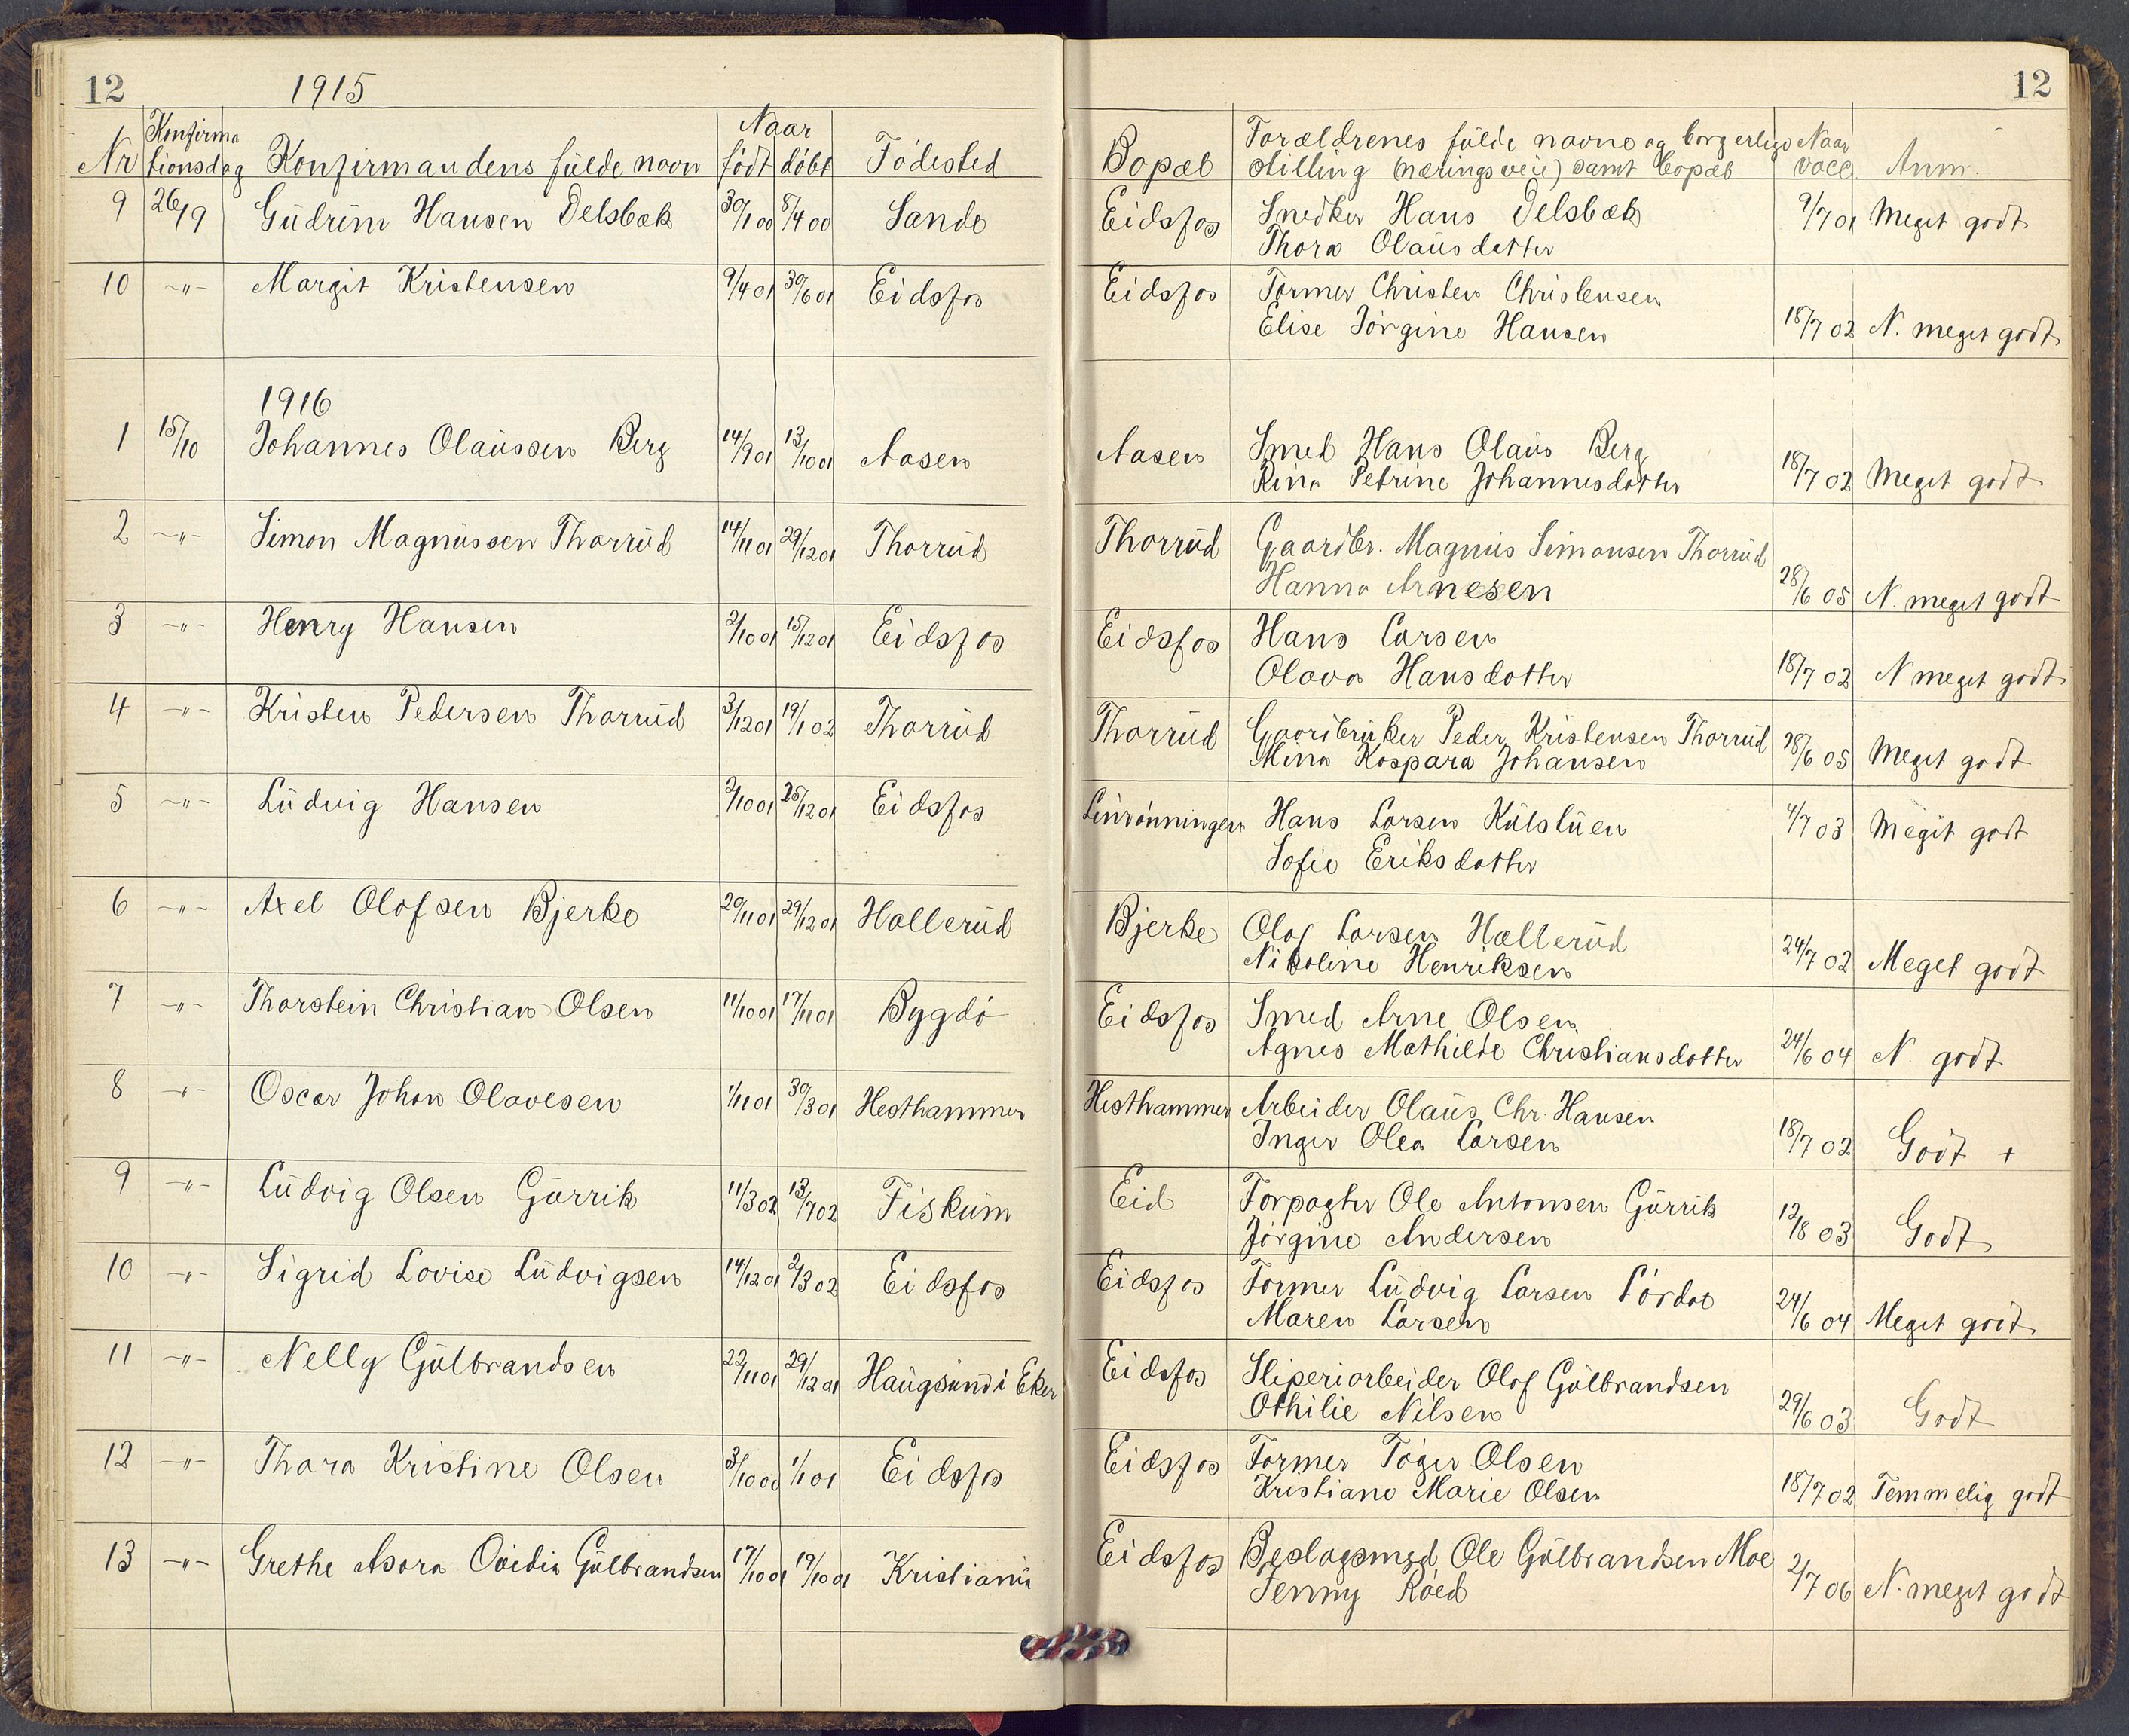 12 1915 12
Nr Konfirmationsdag Konfirmandens fulde navn Naar født døbt Fødested Bopæl Forældrenes fulde navne og borgerlige stilling (næringsveie) samt bopæl Naar vacc. Anm.
9 26/9 Gudrun Hansen Delsbæk 30/1 00 8/4 00 Sande Eidsfos Snedker Hans Delsbæk 9/7 01 Meget godt
Thora Olausdatter
10 -"- Margit Kristensen 9/4 01 30/6 01 Eidsfos Eidsfos Former Christen Christensen
Elise Jørgine Hansen 18/7 02 N. meget godt
1916
1 15/10 Johannes Olaussen Berg 14/9 01 13/10 01 Aasen Aasen Smed Hans Olaus Berg
Rina Petrine Johannesdatter 18/7 02 Meget godt
2 -"- Simon Magnussen Thorrud 14/11 01 29/12 01 Thorrud Thorrud Gaardbr. Magnus Simonsen Thorrud
Hanna Arnesen 28/6 05 N. meget godt
3 -"- Henry Hansen 2/10 01 15/12 01 Eidsfos Eidsfos Hans Larsen
Olava Hansdatter 18/7 02 N meget godt
4 -"- Kristen Pedersen Thorrud 3/12 01 19/1 02 Thorrud Thorrud Gaardbruker Peder Kristensen Thorrud 28/6 05 Meget godt
Mina Kaspara Johansen
5 -"- Ludvig Hansen 2/10 01 25/12 01 Eidsfos Linrønningen Hans Larsen Kulsluen 4/7 03 Meget godt
Sofie Eriksdatter
6 -"- Axel Olafsen Bjerke 20/11 01 29/12 01 Hallerud Bjerke Olaf Larsen Hallerud
Nikoline Henriksen 24/7 02 Meget godt
7 -"- Thorstein Christian Olsen 11/10 01 17/11 01 Bygdø Eidsfos Smed Arne Olsen
Agnes Mathilde Christiansdatter 24/6 04 N. godt
8 -"- Oscar Johan Olavesen 1/11 01 30/3 01 Hesthammer Hesthammer Arbeider Olaus Chr. Hansen
Inger Olea Larsen 18/7 02 Godt +
9 -"- Ludvig Olsen Gurrik 11/3 02 13/7 02 Fiskum Eid Forpagter Ole Antonsen Gurrik
Jørgine Andersen 12/8 03 Godt
10 -"- Sigrid Lovise Ludvigsen 14/12 01 2/3 02 Eidsfos Eidsfos Former Ludvig Larsen Lørdal
Maren Larsen 24/6 04 Meget godt
11 -"- Nelly Gulbrandsen 22/11 01 29/12 01 Haugsund i Eker Eidsfos Sliperiarbeider Olaf Gulbrandsen
Othilie Nilsen 29/6 03 Godt
12 -"- Thora Kristine Olsen 3/10 00 1/1 01 Eidsfos Eidsfos Former Tøger Olsen
Kristiane Marie Olsen 18/7 02 Temmelig godt
13 -"- Grethe Asora Ovidia Gulbrandsen 17/10 01 19/10 01 Kristiania Eidsfos Beslagsmed Ole Gulbrandsen Moe
Jenny Røed 2/7 06 N. meget godt